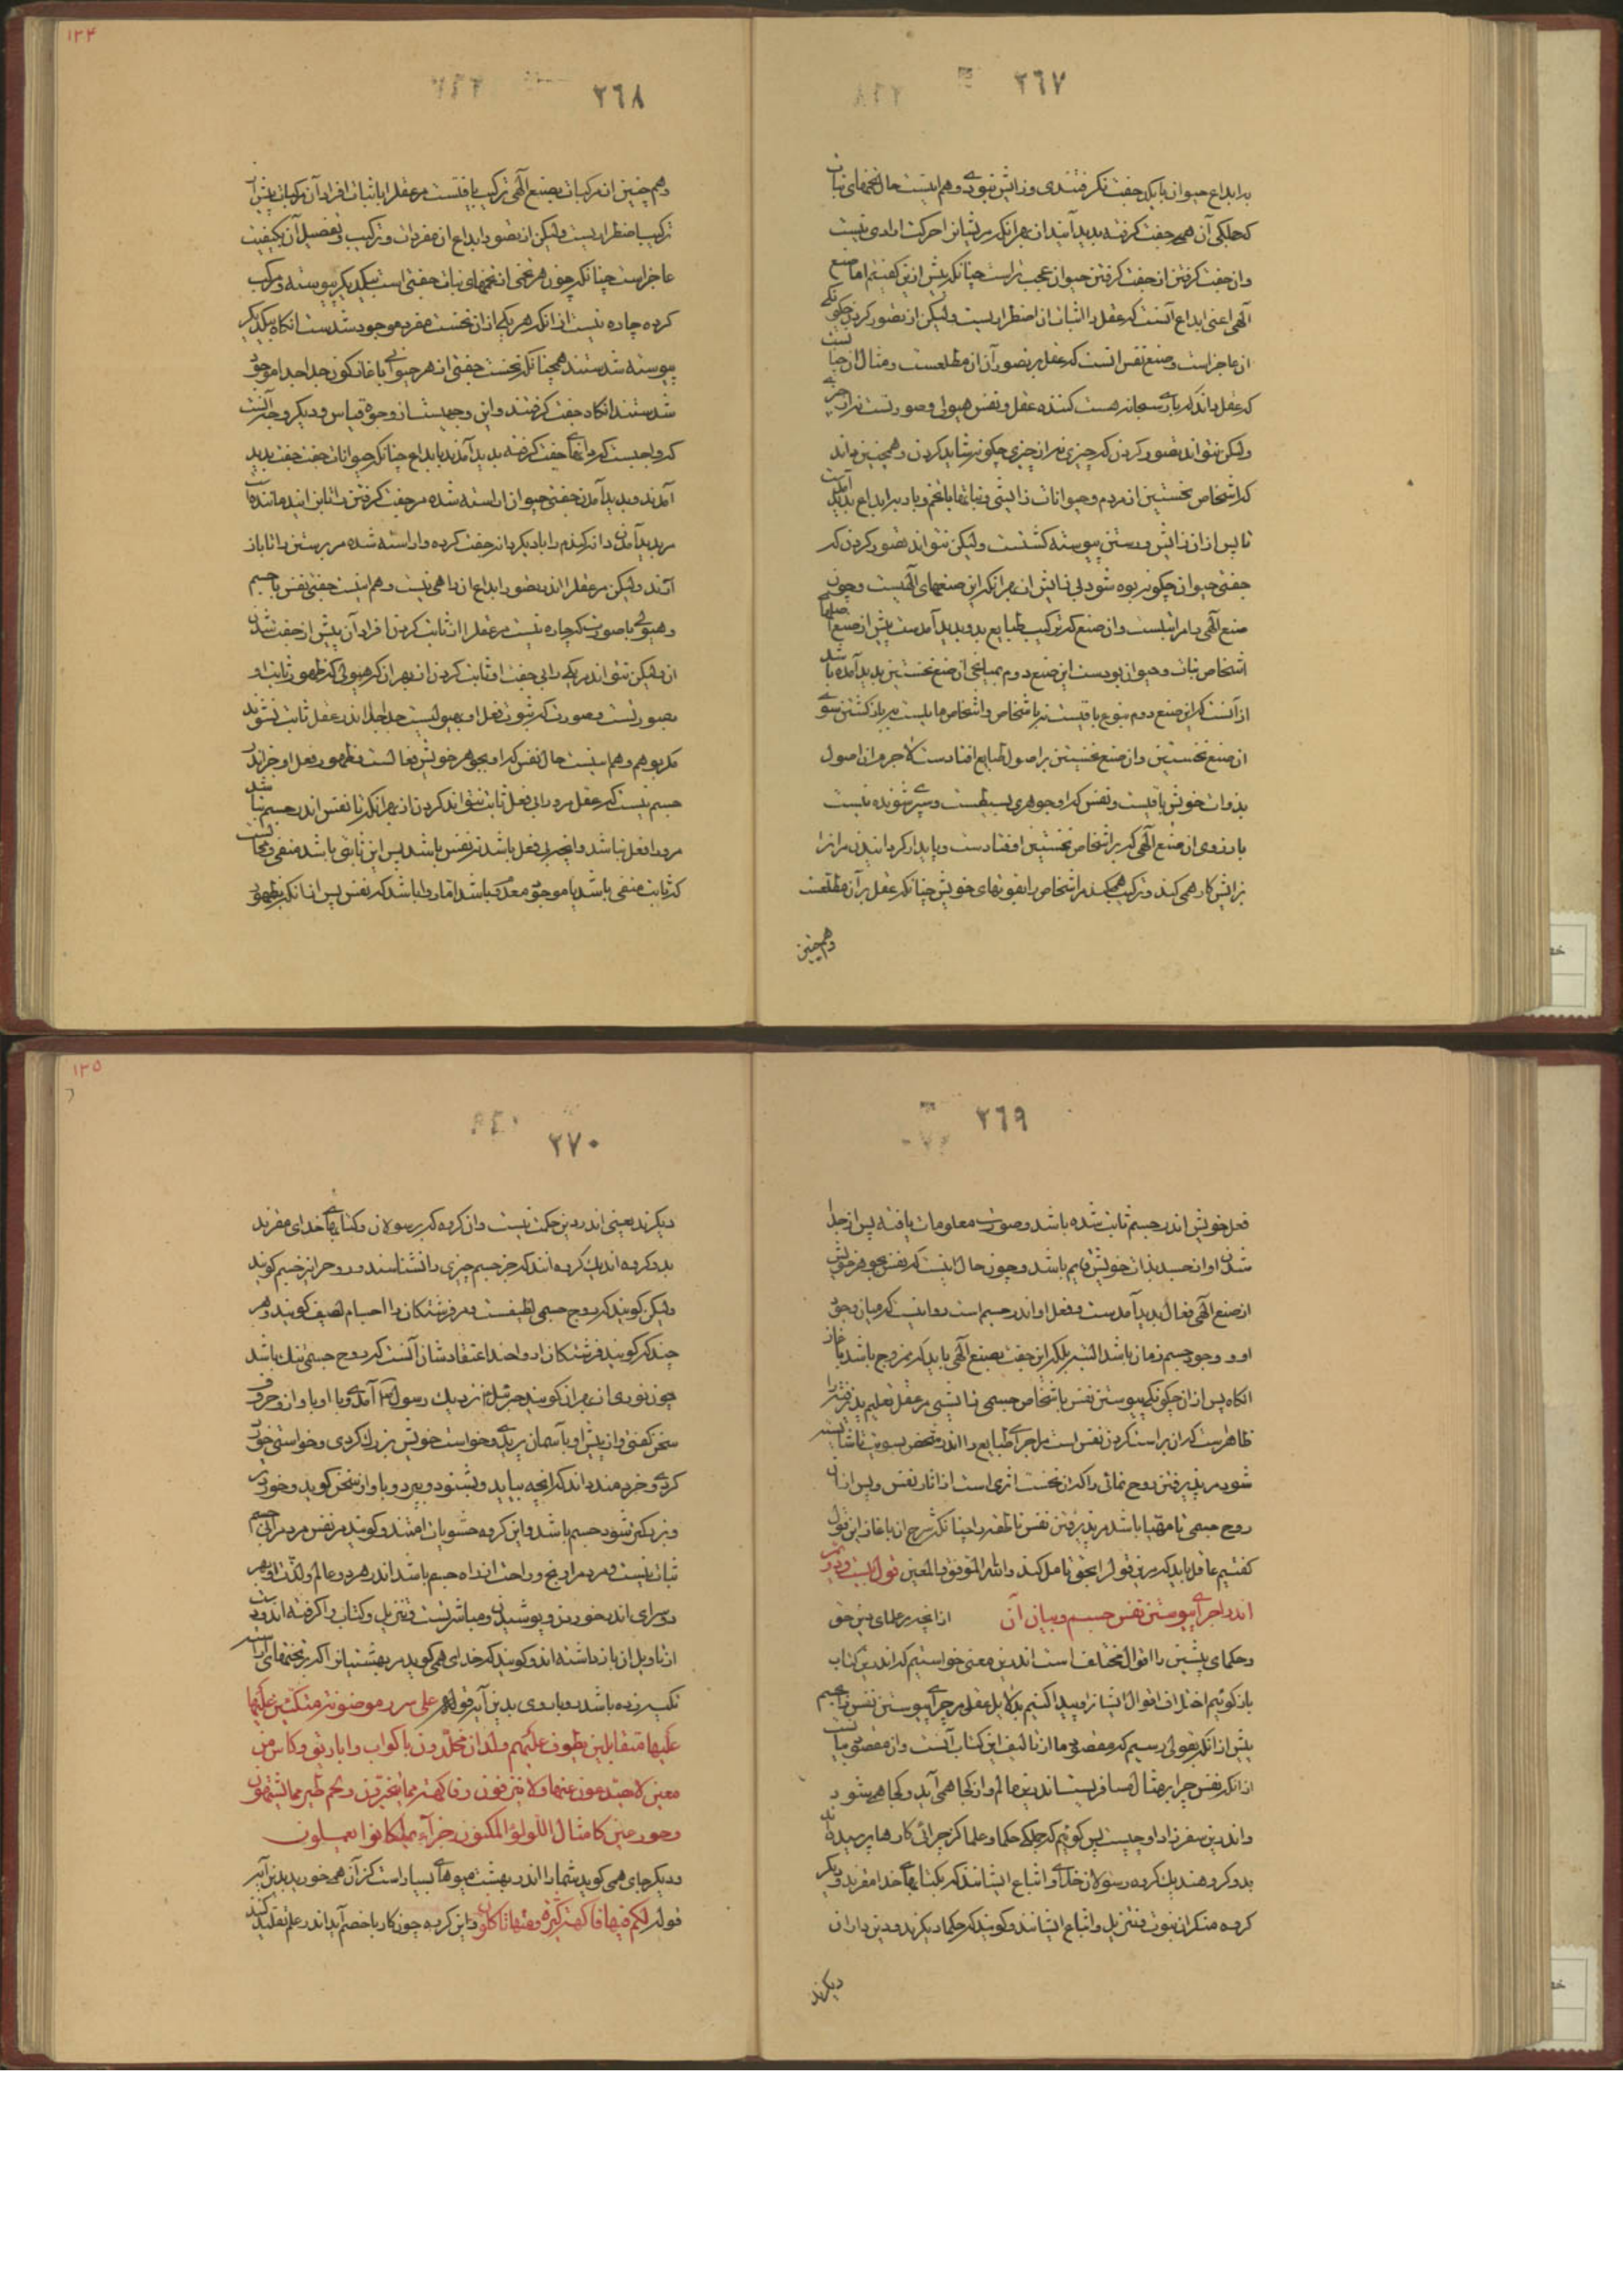 ٢٦٧
بر ابداع حیوان با یکدیگر جفت نگرفتندی و زایش نبودی و هم اینست حال تخمهای نبات
که جملگی آن همی جفت کرفته پدید آیند از بهر آنکه مر نباتراحرکت ارادی نیست
وان جفت کرفتن از جفت کرفتن حیوان عجب تراست چنانکه پیش ازین کفتیم اما صنع
آلهی اعنی ابداع آنست که عقل را اثبات ان اضطراریست ولیکن از تصور کردن چکونگی
ان عاجزاست وصنع نفس انست که عقل بر تصور آن ان مطلعست ومثال ان چنانست
که عقل داند که باری سبحانه هست کننده عقل ونفس وهیولی وصورتست نه از چیزی
ولیکن نتواند تصور کردن که چیزی نه از چیزی چکونه شاید کردن وهمچنین داند
که اشخاص نخستین از مردم وحیوانات زایشی ونباتها باتخم وبار بر ابداع پدید آمدست
تا پس ازان زایش ورستن پیوسته کشتست ولیکن نتواند تصور کردن که
جفتی حیوان چکونه بوده شود بی زایش از بهر آنکه این صنعهای آلهیست وچون
صنع آلهی با مرابتلست وان صنع که ترکیب طبایع بدو پدید آمدست پیش از صنع اصلهای
اشخاص نبات وحیوان بودست این صنع دوم بمیانجی آن صنع نخستین پدید آمده باشد
ازآنست که این صنع دوم بنوع باقیست نه باشخاص واشخاص مایلست بر باز کشتن سوی
ان صنع نخستین وان صنع نخستین بر اصول طبایع افتادست لاجرم ان اصول
بذوات خویش باقیست ونفس که اوجوهری بسیطست وسپری شونده نیست
بارزوی ان صنع آلهی که بر اشخاص نخستین افتادست وپایدار کردانیدن مرانرا
بزایش کار همی کند وترکیب همی کند مراشخاص را بقوتهای خویش چنانکه عقل بر آن مطلعست
وهم چنین
٢٦٨
١٢٤
وهم چنین ان مرکبات بصنع آلهی ترکیب یافتست مر عقل را باثبات افراد آن مرکبات پیش از
ترکیب اضطراریست ولیکن از تصور ابداع ان مفردات وترکیب وتفصیل آن بکیفیت
عاجزاست چنانکه چون هر تخمی از تخمهای نبات جفتی است بیکدیکر پیوسته ومرکب
کرده چاره نیست ازانکه هر یکی ازان نخست مفرد موجود شدست انکاه بیکدیکر
پیوسته شدستند همچنانکه نخست جفتی از هر حیوانی باغاز کون جدا جدا موجود
شدستند انکاه جفت کرفتند واین وجهیست از وجوه قیاس ودیکر وجه آنست
که واجبست که دانهای جفت کرفته پدید آمدند بابداع چنانکه حیوانات جفت جفت پدید
آمدند وپدید آمدن جفتی حیوان اراسته شده مر جفت کرفتن را تا بزایند ماننده است
مر پدید آمدن دانه کندم را با دیکر دانه جفت کرده واراسته شده مر برستن را تا باز
آیند ولیکن مر عقل را اندر تصور ابداع ان راهی نیست وهم اینست جفتی نفس با جسم
وهیولی با صورت که چاره نیست مر عقل را از ثابت کردن افراد آن پیش از جفت شدن
ان ولیکن نتواند مر یکی را بی جفت او ثابت کردن از بهر ان که هیولی که ظهور ثابت او
بصورتست وصورت که ثبوت فعل او بهیولیست جدا جدا اندر عقل ثابت نشوند
مگر بوهم وهم اینست حال نفس که او بجوهر خویش فعالست وظهور فعل او جز اندر
جسم نیست که عقل مرو را بی فعل ثابت نتواند کردن از بهر آنکه تا نفس اندر جسم نباشد
مرورا فعل نباشد وانچه بی فعل باشد نه نفس باشد پس این ثابتی باشد منفی ومحالست
که ثابت منفی باشد یا موجود معدوم باشد اما روا باشد که نفس پس از انکه بظهور
٢٦٩
فعل خویش اندر جسم ثابت شده باشد وصورت معلومات یافته پس از جدا
شدن او از جسد بذات خویش قایم باشد وچون حال اینست که نفس بجوهر خویش
از صنع آلهی فعال پدید آمدست وفعل او اندر جسم است روا نیست که میان وجود
او ووجود جسم زمان باشد البته بلکه این جفت بصنع آلهی باید که مزدوج باشد باغاز
انکاه پس ازان چکونگی پیوستن نفس باشخاص جسمی زایشی مر عقل تعلیم پذیرفته را
ظاهرست که ان براست کردن نفس است مراجرای طبایع را اندر شخص بسویت تا شایسته
شود مر پذیرفتن روح نمائی را که ان نخست اثری است از اثار نفس وپس ازان
روح حسی تا مهیا باشد مر پذیرفتن نفس ناطقه را چنانکه شرح ان باغاز این قول
کفتیم عاقل باید که درین قول بحق تامل کند والله الموفق والمعین قول بیست ودوم
اندر اجرای پیوستن نفس جسم وبیان آن ازانچه مر علمای دین حق
وحکمای پیشین را اقوال مختلف است اندرین معنی خواستیم که اندرین کتاب
باز کوئیم اختلاف اقوال ایشانرا وپیدا کنیم بدلایل عقلی مر چرای پیوستن نفس با جسم
پیش ازانکه بقولی رسیم که مقصود ما از تالیف این کتاب آنست وان مقصود بیانست
ازانکه نفس چرا بر مثال مسافریست اندرین عالم واز کجا همی آید وکجا همی شود
واندرین سفر زاد او چیست پس کوئیم که جملگی حکما وعلما کز چرائی کارها پرسیدند
بدو کروهند یک کروه رسولان خدای واتباع ایشانند که بکتابهای خدا مقرند ودیکر
کروه منکران نبوت وتنزیل واتباع ایشانند وکویند که حکما دیکرند ودین داران
دیکرند
٢٧٠
١٢٥
دیکرند یعنی اندر دین حکمت نیست وان کروه که بر رسولان وکتابهای خدای مقرند
بدو کروه اند یک کروه آنند که جز جسم چیزی را نشناسند وروح را نیز جسم کویند
ولیکن کویند که روح جسمی لطیفست ومر فرشتکان را اجسام لطیف کویند وهر
چند که کویند فرشتکان ارواحند اعتقادشان آنست که روح جسمی تنک باشد
چون نوری از بهر ان کویند جبرئیل نزدیک رسول آمدی وبا او باواز وحروف
سخن کفتی واز پیش او بآسمان بر پریدی وخواست خویشتن بزرک کردی وخواستی خورد
کردی وخردمند داند که انچه بیاید وبشنود وبپرد وباواز سخن کوید وخورد
وبزرکتر شود جسم باشد واین کروه حشویان امتند وکویند مر نفس مردم را بی جسم
ثبات نیست ومردم را رنج وراحت از راه جسم باشد اندر هر دو عالم ولذت او بهر
دو سرای اندر خوردن وپوشیدن ومباشرتست وتنزیل وکتاب را کرفته اند ودست
از تاویل ان باز داشته اند وکویند که خدای همی کوید مر بهشتیانرا که بر تختهای آراسته
تکیه زده باشند رویاروی بدین آیه قوله علی سرر موضونة متکئین علیها
علیها متقابلین یطوف علیهم ولدان مخلدون باکواب واباریق وکاس من
معین لا یصدعون عنها ولا ینزفون وفاکهة مما یتخیرون ولحم طیر مما یشتهون
وحور عین کامثال اللؤلؤ المکنون جزآء بما کانوا یعملون
ودیکر جای همی کوید شمارا اندر بهشت میوهای بسیار است کز آن همی خورید بدین آیه
قوله لکم فیها فاکهة کثیرة ومنها تاکلون واین کروه چون کار با خصم آید اندر علم تقلید کنند